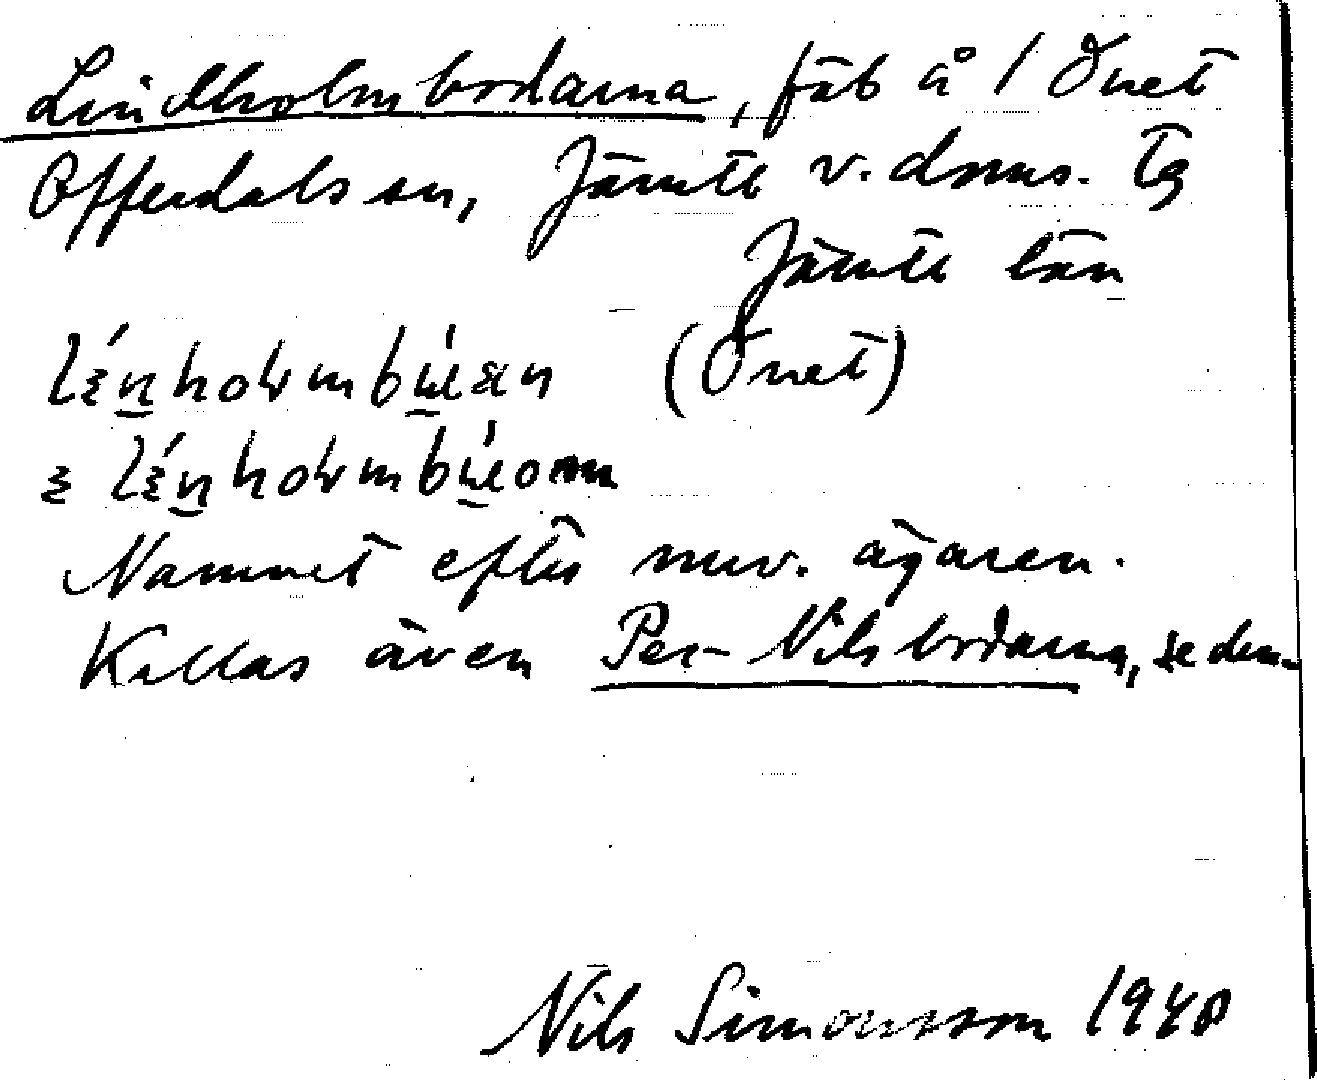 Lindholmbodarna, fäb å 1 Önet
Offerdals sn, Jämtl v. doms. tg
Jämtl län
(Önet)
Namnet efter nuv. ägaren.
Kallas även Per-Nilsbodarna, se den
Nils Simonsson 1940